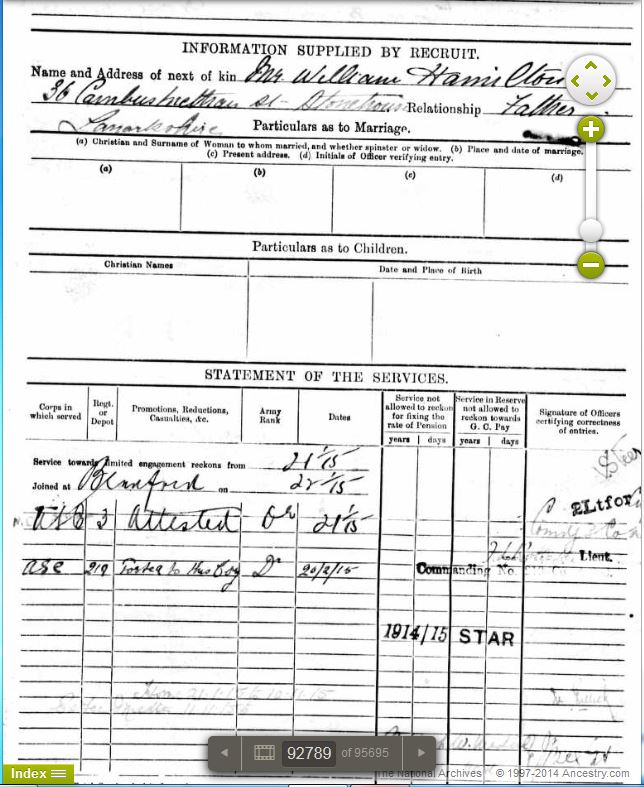 INFORMATION SUPPLIED BY RECRUIT.
Name and Address of next of kin Mr William Hamilton
36 Cambusnethan St Stonehouse Relationship Father
Lanarkshire Particulars as to Marriage.
(a) Christian and Surname of Woman to whom married, and whether spinster or widow. (b) Place and date of marriage.
(c) Present address. (d) Initials of Officer verifying entry.
(a) (b) (c) (d)
Particulars as to Children.
Christian Names Date and Place of Birth
STATEMENT OF THE SERVICES.
Corps in which served Regt. or Depot Promotions, Reductions, Casualties, &c. Army Rank Dates Service not allowed to reckon for fixing the rate of Pension Service in Reserve not allowed to reckon towards G. C. Pay Signature of Officers certifying correctness of entries.
years days years days
Service towards limited engagement reckons from 21/1/15
Joined at on 22/1/15
2Lt for
ASC 3 Attested Dr 21/1/15
Lieut.
ASC 219 Posted to this Coy Dr 20/2/15 Commanding No.
1914/15 STAR
Home 21.1.15 to 10.11.15
92789 of 95695
Index
The National Archives © 1997-2014 Ancestry.com